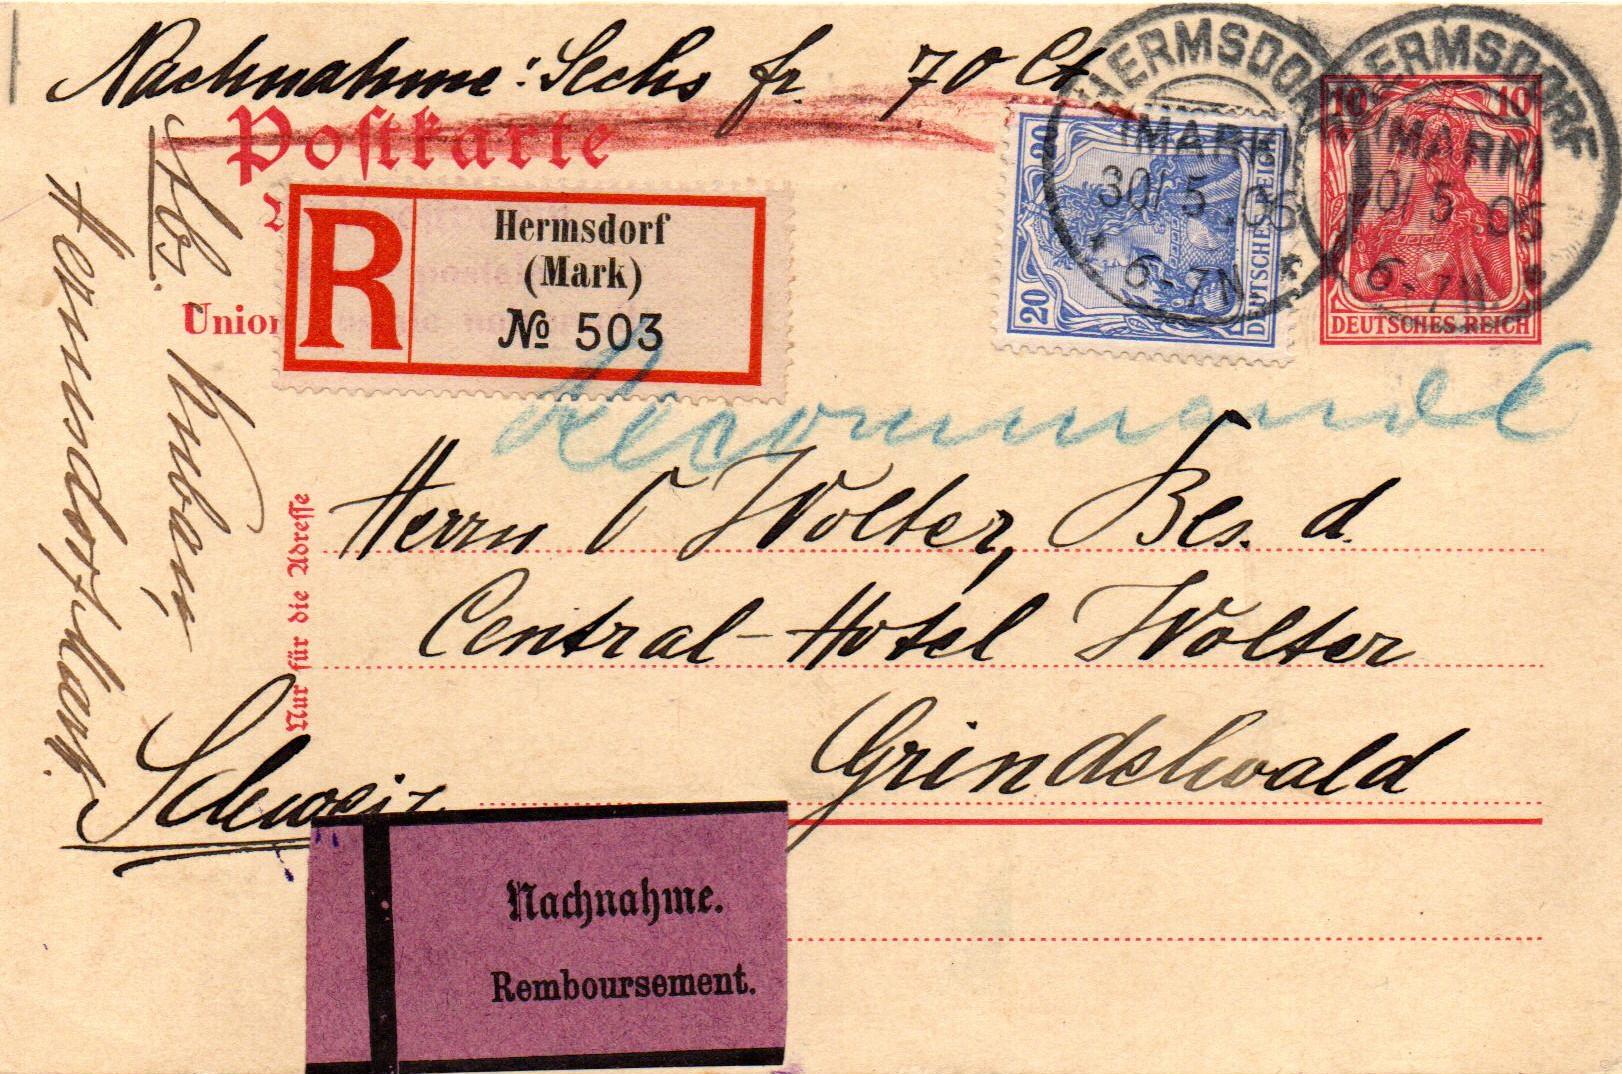 Nachnahme: Sechs fr. 70 Ct
Postkarte
Union
R
Hermsdorf
(Mark)
№ 503
20 20
DEUTSCHES REICH
20
HERMSDORF
(MARK)
30/5.05
6-7N
10 10
DEUTSCHES REICH
HERMSDORF
(MARK)
30/5 05
6-7N
Recommandé
Abs.
Hermsdorf, Mark.
Nur für die Adresse
Herrn Wolter, Bes. d.
Central-Hotel Wolter
Grindelwald
Schweiz
Nachnahme.
Remboursement.